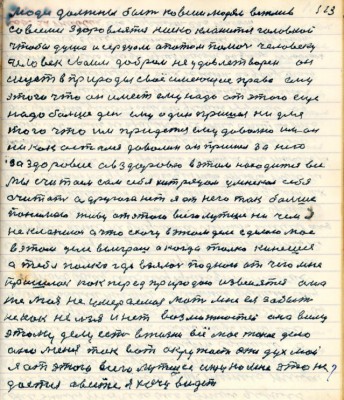 113
люди должны быть ковсим людям вежлив
со всеми здороватся низко кланится головной
чтобы душа и сердцом а потом помоч человеку
человек своим добром не удовлетворен он
ищеть в природы своё имеющие право ему
этого что он имеет ему надо от этого еще
надо больше ден ему один пришол ни для
того что им придется ему доволно им он
ни как остался доволин он пришол за него
За здоровие а в здоровью в этом находится все
мы считаем сам себя хитрецом умнея себя
считать а другога нет я от него так болше
понимаю живу от этого всего лутше ни чем
не кланится а то скочу в этом деле сделаю мое
в этом деле выиграю а когда только кинешся
а тебя полко где взялось подном от чего мне
пришлось как перед природою извенятся она
же моя не умераемая мать мне её забыть
некак нельзя и нет возможностей она всему
этому делу есть в жизни всё мое такое дело
оно меня так вот окружаеть он дух мой
я от этого всего лутшее ищу но мне это не
дается а вести я хочу видеть